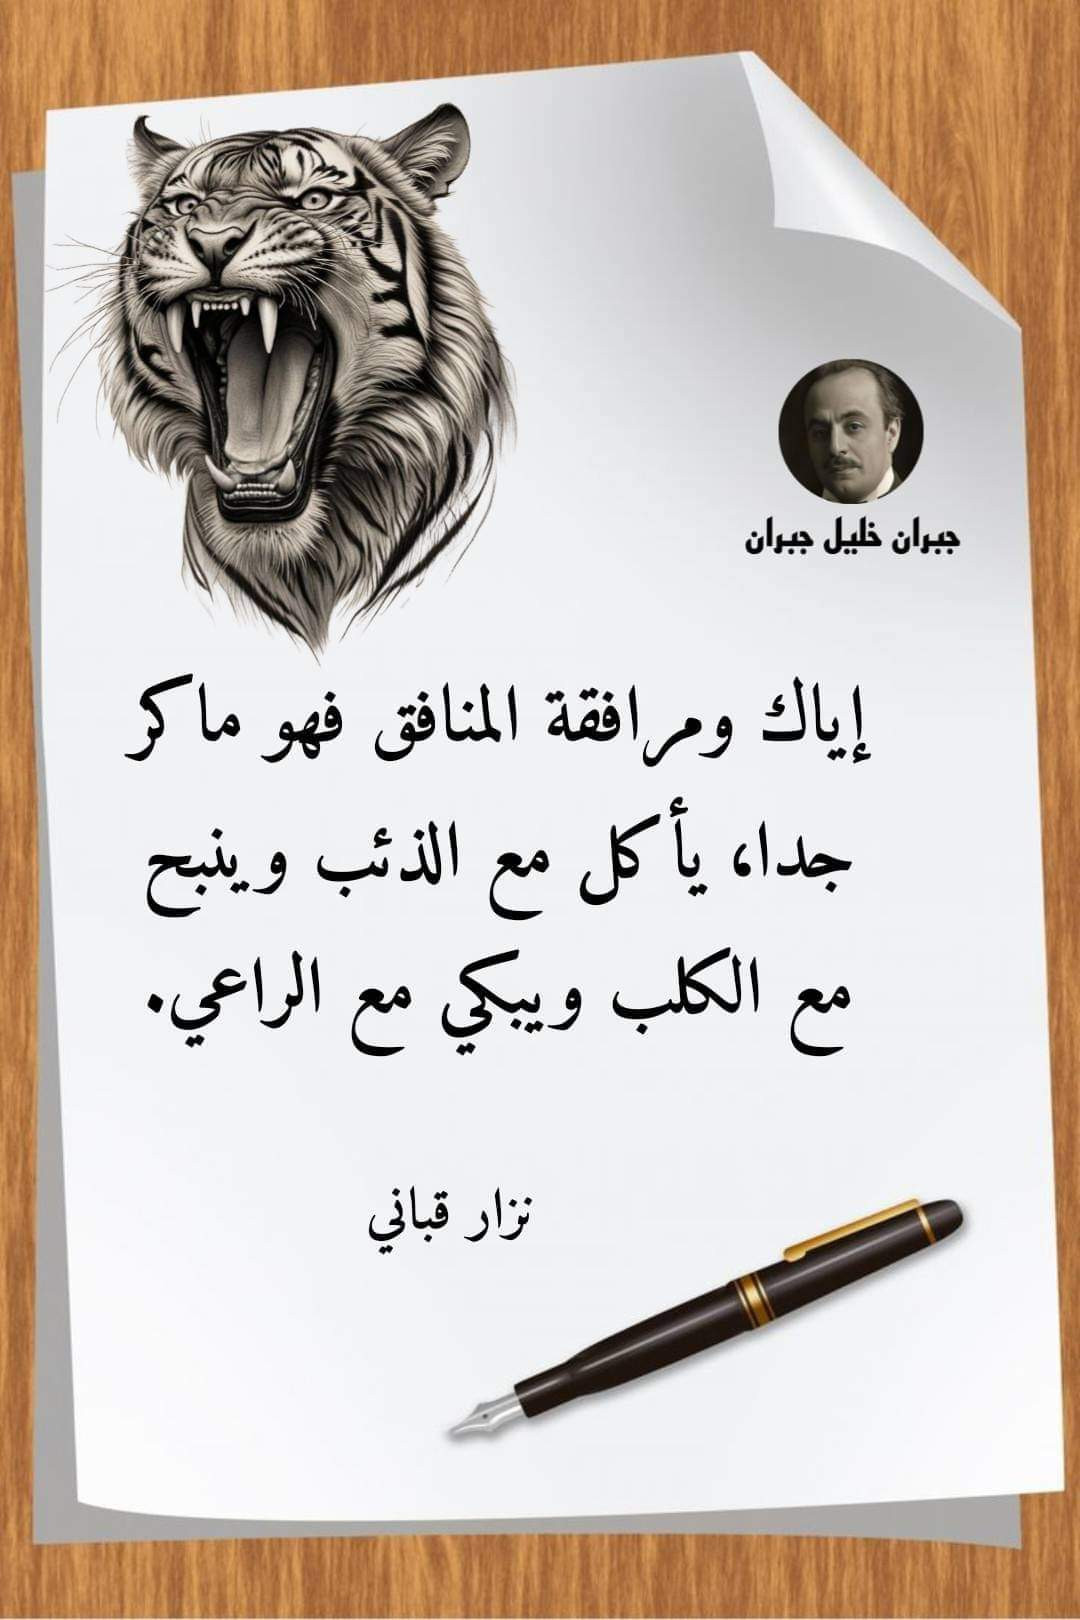 جبران خليل جبران
إياك ومرافقة المنافق فهو ماكر
جدا، يأكل مع الذئب وينبح
مع الكلب ويبكي مع الراعي.
نزار قباني